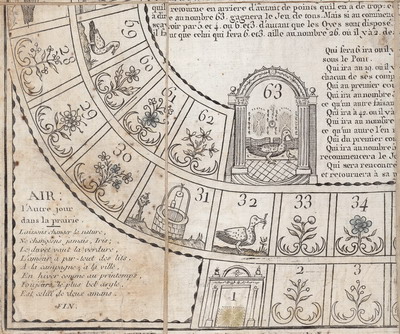 qu'il retourne en arriere d'autant de points qu'il en a de trop: et
au nombre 63. gagnera le Jeu de tous. Mais si au
par 5 et 4. ou 6 et 3. d'autant que les Oyes sont
que celui qui fera 6. et 3. aille au nombre 26. ou il y a 2.
Qui fera 6 ira ou il y
sous le Pont.
Qui ira au 19. ou il y
chacun de ses
Qui au premier
Qui ira au nombre
ce qu'un autre
Qui ira a 42. ou il y
Qui ira au nombre
ce qu'un autre l'en
Qui du premier
Qui ira au nombre
recommencera le Je
Qui sera rencontré
et retournera à sa
59
60
61
62
63
31
32
33
34
1
2
3
AIR:
l'Autre jour
dans la prairie.
Laissons changer la nature,
Ne changeons jamais, Iris;
Le duvet vaut la verdure,
L'amour a par-tout des lits,
A la campagne, à la ville,
En hiver comme au printemps
Toujours le plus bel asyle
Est celui de deux amans.
FIN.